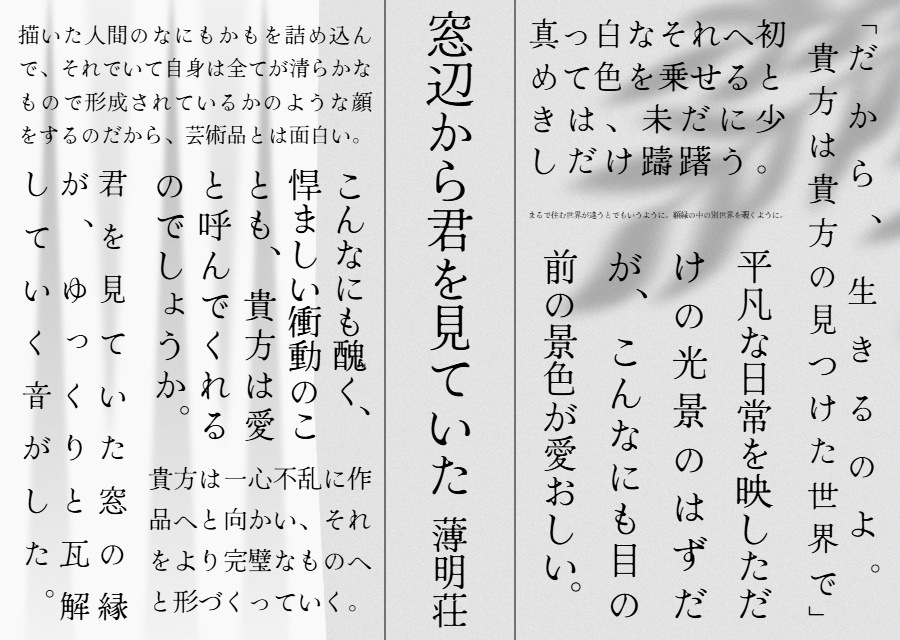 「だから、生きるのよ。
貴方は貴方の見つけた世界で」
真っ白なそれへ初
めて色を乗せると
きは、未だに少
しだけ躊躇う。
まるで住む世界が違うとでもいうように。額縁の中の別世界を覗くように。
平凡な日常を映しただ
けの光景のはずだ
が、こんなにも目の
前の景色が愛おしい。
窓辺から君を見ていた 薄明荘
描いた人間のなにもかもを詰め込ん
で、それでいて自身は全てが清らかな
もので形成されているかのような顔
をするのだから、芸術品とは面白い。
こんなにも醜く、
悍ましい衝動のこ
とも、貴方は愛
と呼んでくれる
のでしょうか。
貴方は一心不乱に作
品へと向かい、それ
をより完璧なものへ
と形づくっていく。
君を見ていた窓の縁
が、ゆっくりと瓦解
していく音がした。